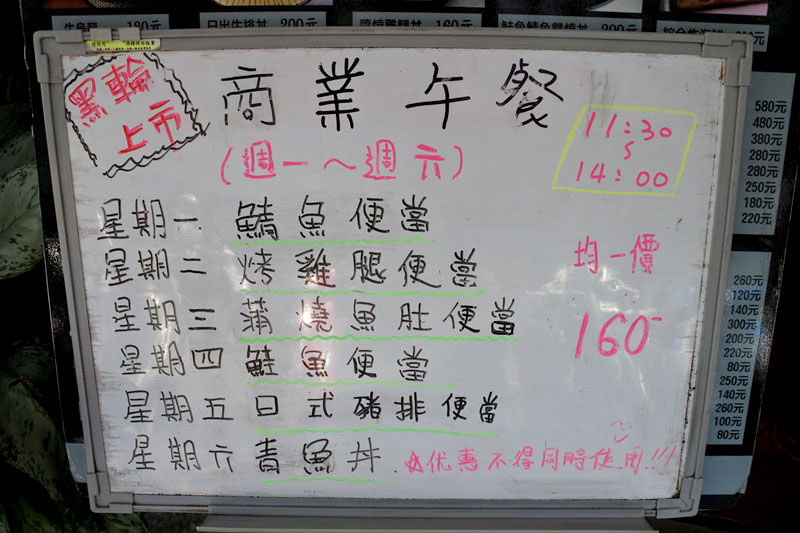 黑輪
上市
商業午餐
(週一～週六)
11:30
14:00
星期一 鯖魚便當
星期二 烤雞腿便當
星期三 蒲燒魚肚便當
星期四 鮭魚便當
星期五 日式豬排便當
星期六 青魚丼
均一價
160-
☆优惠不得同時使用!!!
180元
日出生排丼 200元
160元
200元
580元
480元
380元
280元
280元
250元
180元
220元
260元
120元
140元
300元
200元
220元
80元
250元
140元
260元
100元
80元